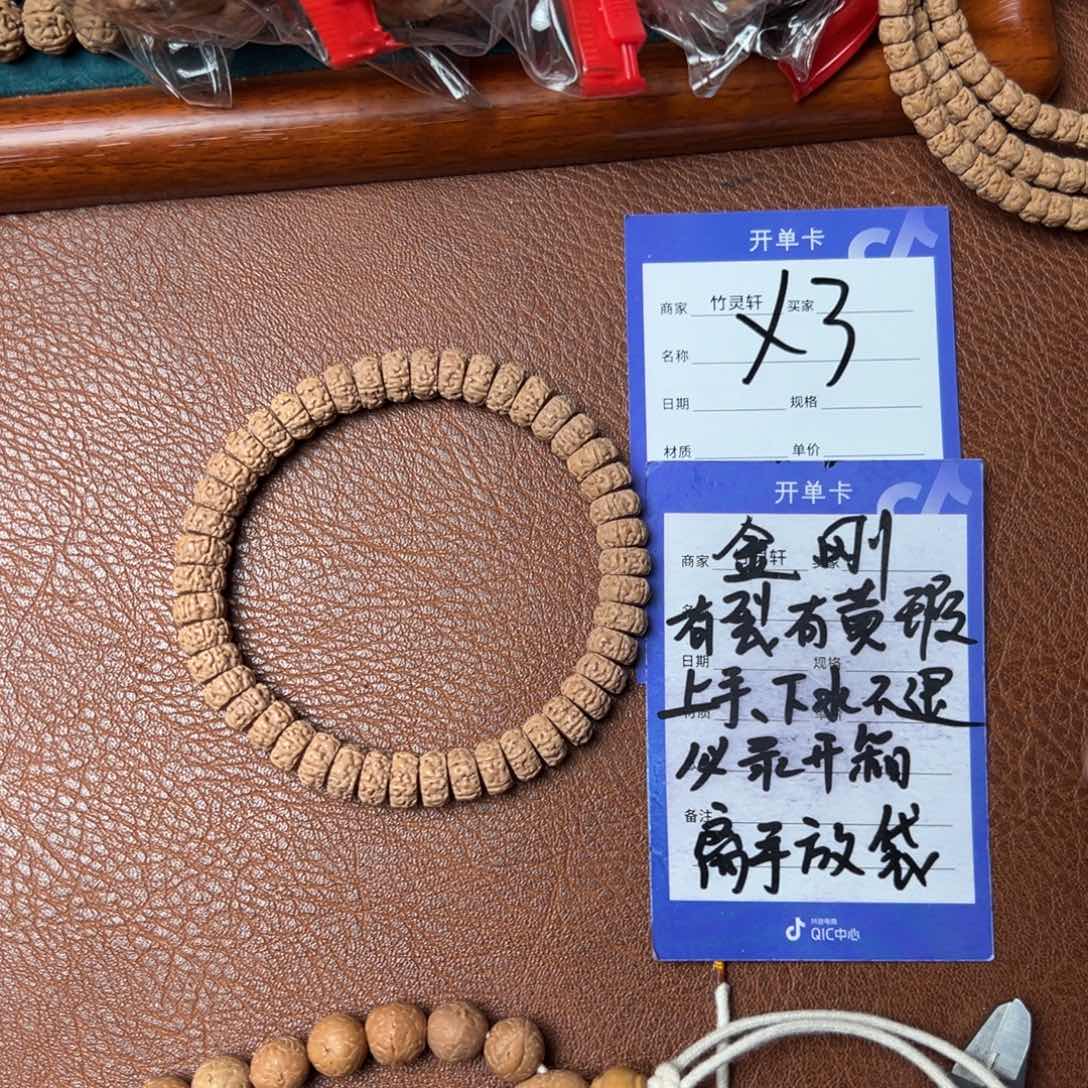 开单卡
商家 竹灵轩 买家
X3
名称
日期 规格
材质 单价
开单卡
商家 轩
金刚
有裂有黄瑕
日期 规格
上手、下水不退
必录开箱
备注
离手放袋
抖音电商
QIC中心